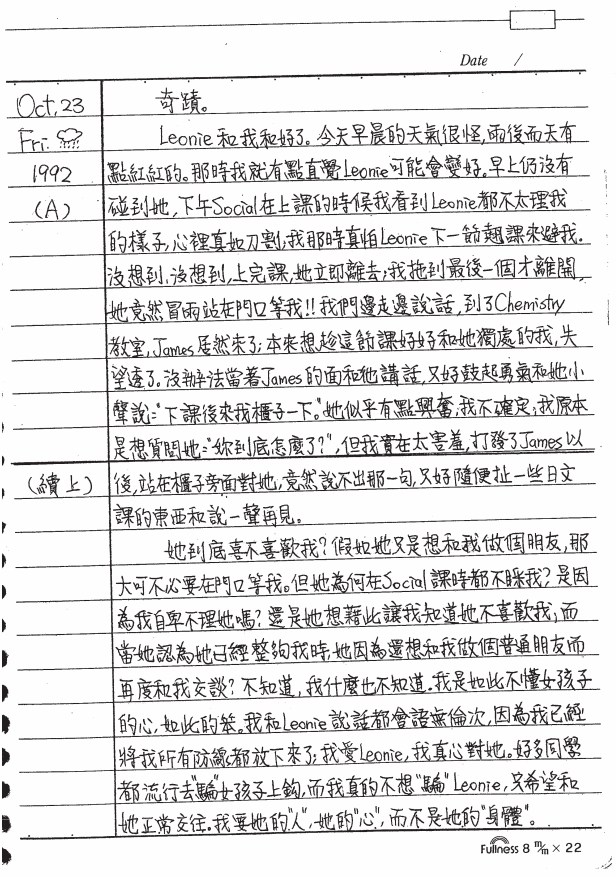 Date /
Oct, 23 奇蹟。
Fri. Leonie和我和好了。今天早晨的天氣很怪,雨後而天有
1992 點紅紅的。那時我就有點直覺Leonie可能會變好。早上仍沒有
(A) 碰到她,下午Social在上課的時候我看到Leonie都不太理我
的樣子,心裡真如刀割;我那時真怕Leonie下一節翹課來避我。
沒想到,沒想到,上完課,她立即離去;我拖到最後一個才離開,
她竟然冒雨站在門口等我!!我們邊走邊說話,到了Chemistry
教室,James居然來了;本來想趁這節課好好和她獨處的我,失
望透了。沒辦法當著James的面和她講話,又好鼓起勇氣和她小
聲說:"下課後來我櫃子一下。"她似乎有點興奮,我不確定,我原本
是想質問她:"妳到底怎麼了?",但我實在太害羞,打發了James以
(續上) 後,站在櫃子旁面對她,竟然說不出那一句,又好隨便扯一些日文
課的東西和說一聲再見。
她到底喜不喜歡我?假如她又是想和我做個朋友,那
大可不必要在門口等我。但她為何在Social課時都不睬我?是因
為我自卑不理她嗎?還是她想藉此讓我知道她不喜歡我;而
當她認為她已經整夠我時,她因為還想和我做個普通朋友而
再度和我交談?不知道,我什麼也不知道。我是如此不懂女孩子
的心,如此的笨。我和Leonie說話都會語無倫次,因為我已經
將我所有防線都放下來了;我愛Leonie,我真心對她。好多同學
都流行去"騙"女孩子上鈎,而我真的不想"騙"Leonie,只希望和
她正常交往。我要她的"人",她的"心",而不是她的"身體"。
Fullness 8 m/m × 22